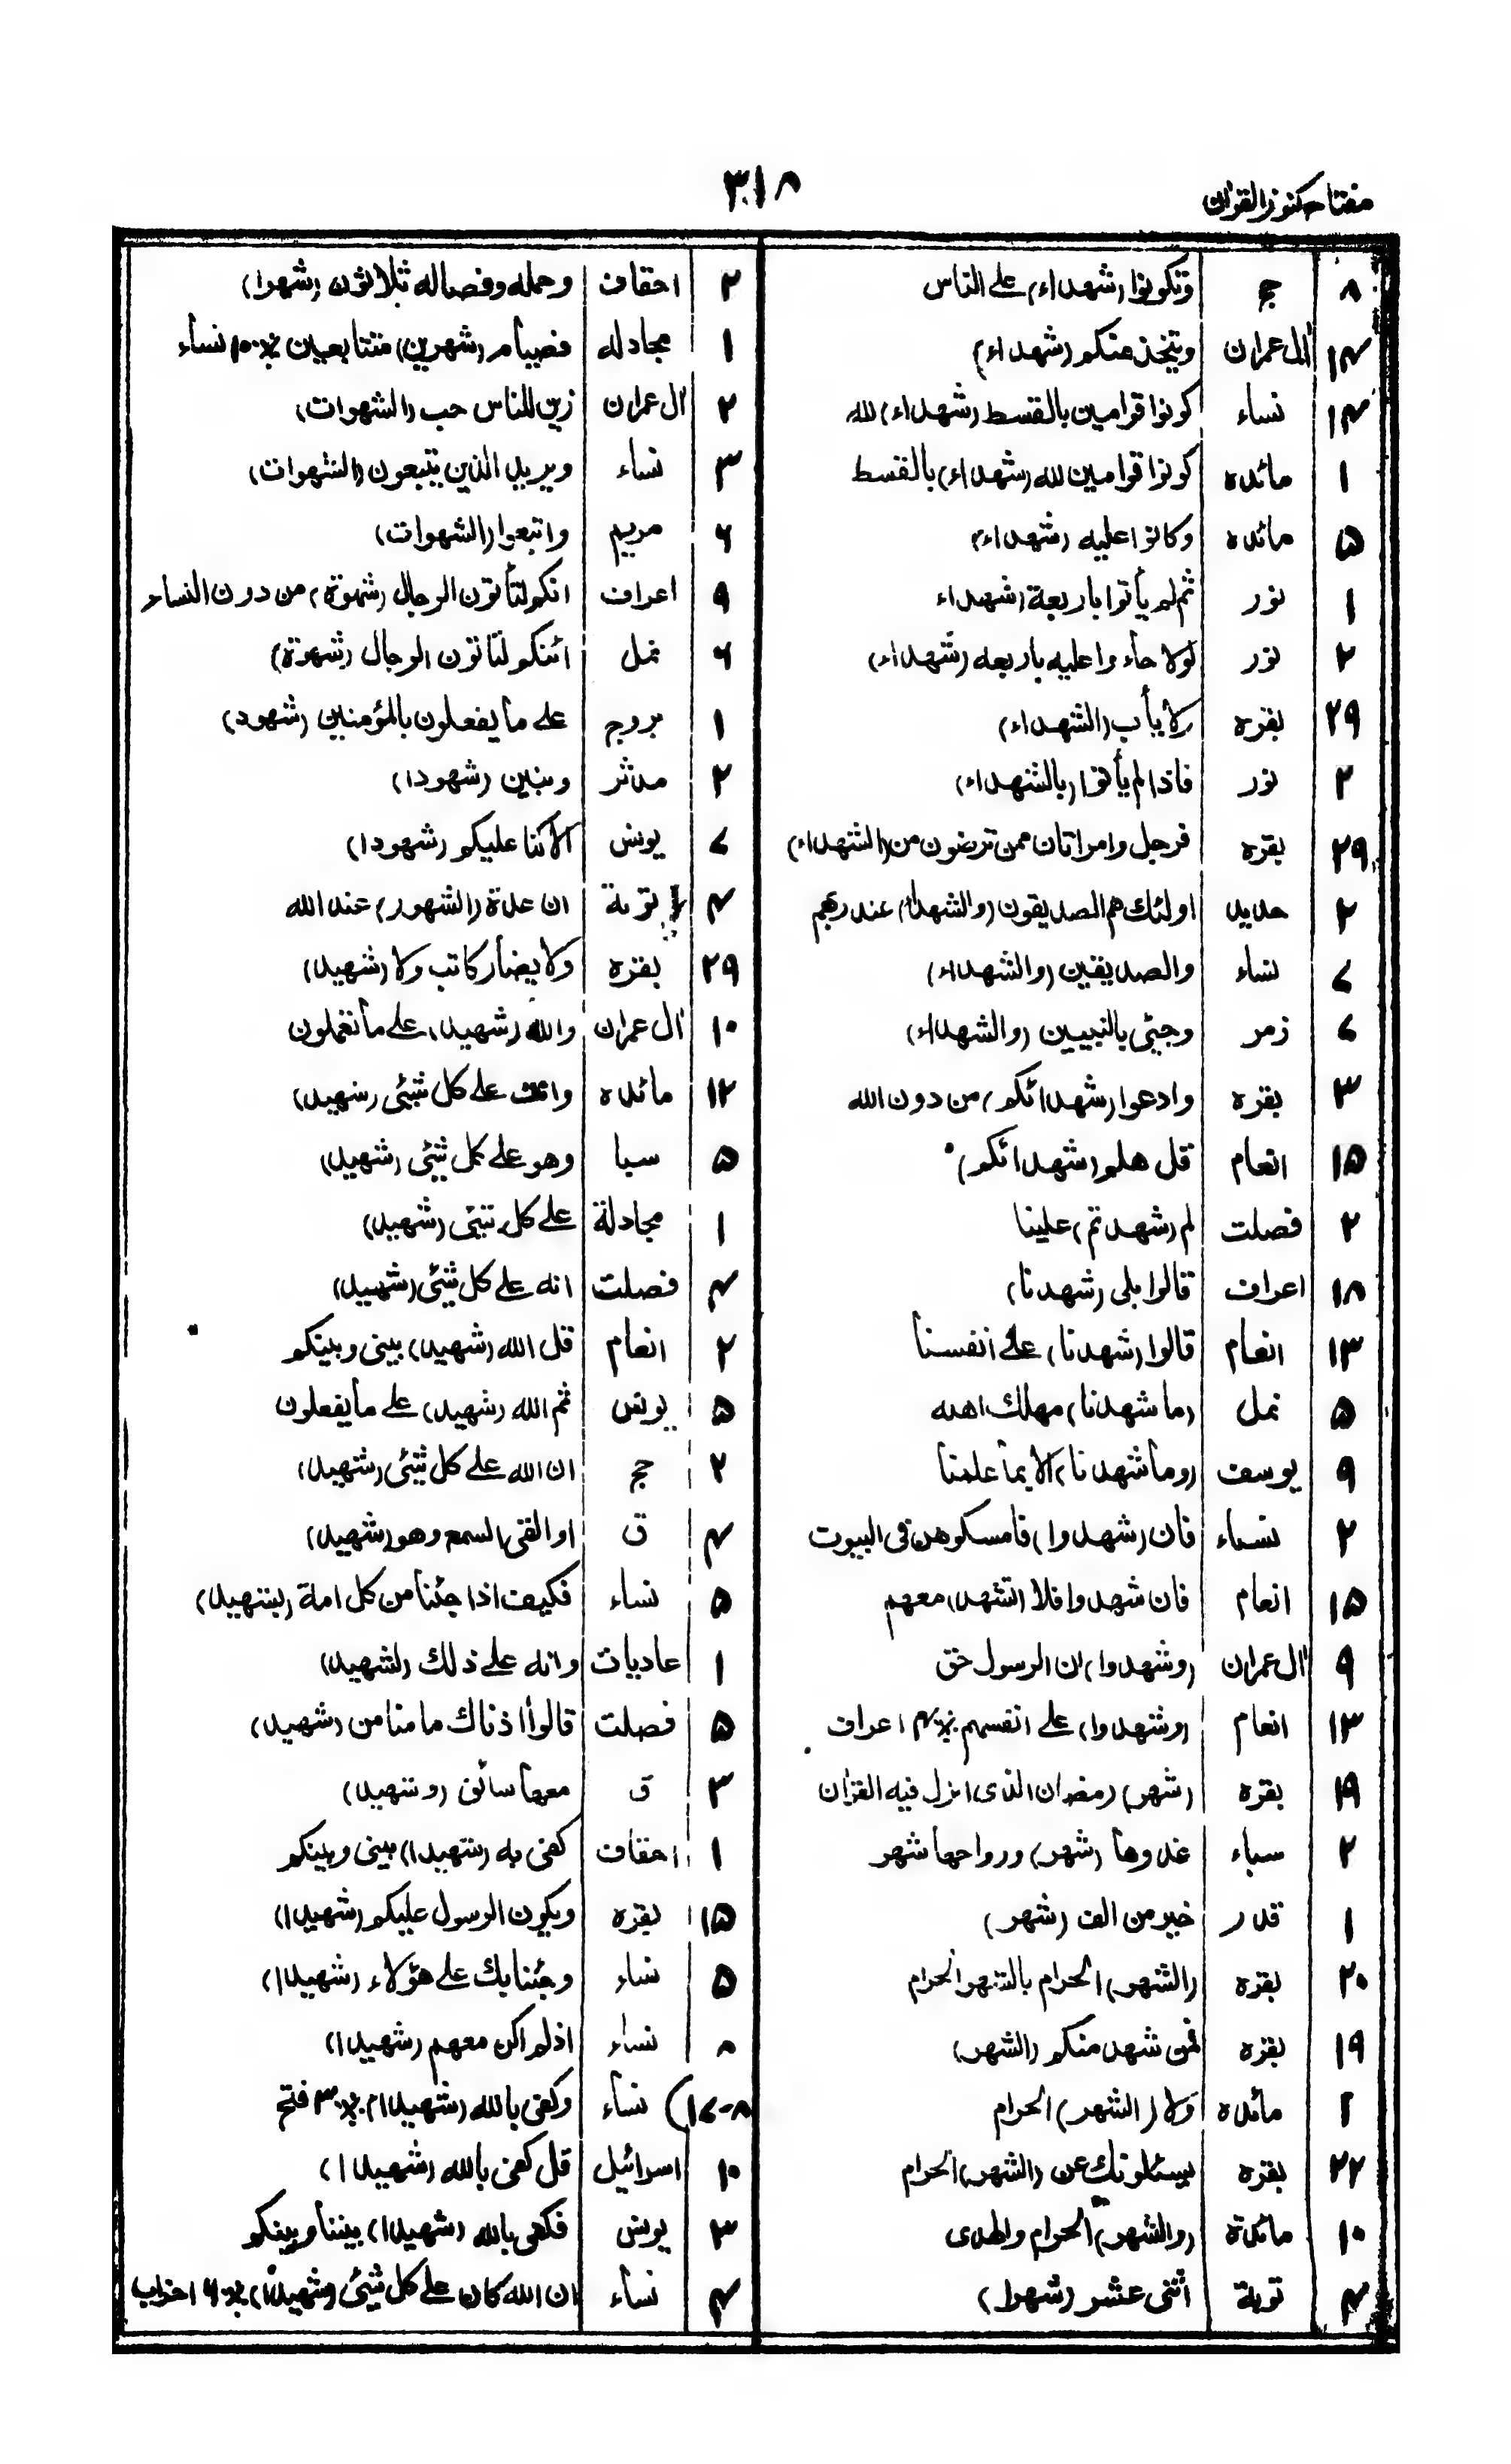 مفتاح کنوز القرآن
۳۱۸
۸ حج وتکونوا (شهداء) علی الناس
۱۴ اٰل عمران ویتخذ منکم (شهداء)
۱۴ نساء کونوا قوامین بالقسط (شهداء) لله
۱ مائده کونوا قوامین لله (شهداء) بالقسط
۵ مائده وکانوا علیه (شهداء)
۱ نور ثم لم یأتوا باربعة (شهداء
۲ نور لولا جاءوا علیه باربعه (شهداء)
۲۹ بقره ولا یأب (الشهداء)
۲ نور فاذا لم یأتوا (بالشهداء)
۲۹ بقره فرجل وامراتان ممن ترضون من (الشهداء)
۲ حدید اولئك هم الصدیقون (والشهداء) عند ربهم
۷ نساء والصدیقین (والشهداء)
۷ زمر وجیٔ بالنبیین (والشهداء)
۳ بقره وادعوا (شهدائکم) من دون الله
۱۵ انعام قل هلم (شهدائکم)
۲ فصلت لم (شهدتم) علینا
۱۸ اعراف قالوا بلی (شهدنا)
۱۳ انعام قالوا (شهدنا) علی انفسنا
۵ نمل (ما شهدنا) مهلك اهله
۹ یوسف (وما شهدنا) الا بما علمنا
۲ نساء فان (شهدوا) فامسکوهن فی البیوت
۱۵ انعام فان شهدوا فلا (تشهد) معهم
۹ اٰل عمران (وشهدوا) ان الرسول حق
۱۳ انعام (وشهدوا) علی انفسهم ٪ ۴ اعراف
۱۹ بقره (شهر) رمضان الذی انزل فیه القرآن
۲ سباء غدوها (شهر) ورواحها شهر
۱ قدر خیر من الف (شهر)
۲۰ بقره (الشهر) الحرام بالشهر الحرام
۱۹ بقره فمن شهد منکم (الشهر)
۲ مائده ولا (الشهر) الحرام
۲۲ بقره یسئلونك عن (الشهر) الحرام
۱۰ مائدة (والشهر) الحرام والهدی
۴ توبة اثنی عشر (شهرا)
۲ احقاف وحمله وفصاله ثلاثون (شهرا)
۱ مجادله فصیام (شهرین) متتابعین ٪ ۱۰ نساء
۲ اٰل عمران زین للناس حب (الشهوات)
۳ نساء ویرید الذین یتبعون (الشهوات)
۶ مریم واتبعوا (الشهوات)
۹ اعراف انکم لتأتون الرجال (شهوة) من دون النساء
۶ نمل ائنکم لتاتون الرجال (شهوة)
۱ بروج علی ما یفعلون بالمؤمنین (شهود)
۲ مدثر وبنین (شهودا)
۷ یونس الا کنا علیکم (شهودا)
۴ توبة ان عدة (الشهور) عند الله
۲۹ بقره ولا یضار کاتب ولا (شهید)
۱۰ اٰل عمران والله (شهید) علی ما تعملون
۱۲ مائده وانت علی کل شیٔ (شهید)
۵ سبا وهو علی کل شیٔ (شهید)
۱ مجادلة علی کل شیٔ (شهید)
۴ فصلت انه علی کل شیٔ (شهید)
۲ انعام قل الله (شهید) بینی وبینکم
۵ یونس ثم الله (شهید) علی ما یفعلون
۲ حج ان الله علی کل شیٔ (شهید)
۴ ق او القی السمع وهو (شهید)
۵ نساء فکیف اذا جئنا من کل امة (بشهید)
۱ عادیات وانه علی ذلك (لشهید)
۵ فصلت قالوا اٰذناك ما منا من (شهید)
۳ ق معها سائق (وشهید)
۱ احقاف کفی به (شهیدا) بینی وبینکم
۱۵ بقره ویکون الرسول علیکم (شهیدا)
۵ نساء وجئنا بك علی هؤلاء (شهیدا)
۸ نساء اذ لم اکن معهم (شهیدا)
۸-۱۷) نساء وکفی بالله (شهیدا) ٪ ۳ فتح
۱۰ اسرائیل قل کفی بالله (شهیدا)
۳ یونس فکفی بالله (شهیدا) بیننا وبینکم
۴ نساء ان الله کان علی کل شیٔ (شهیدا) ٪ ۶ احزاب